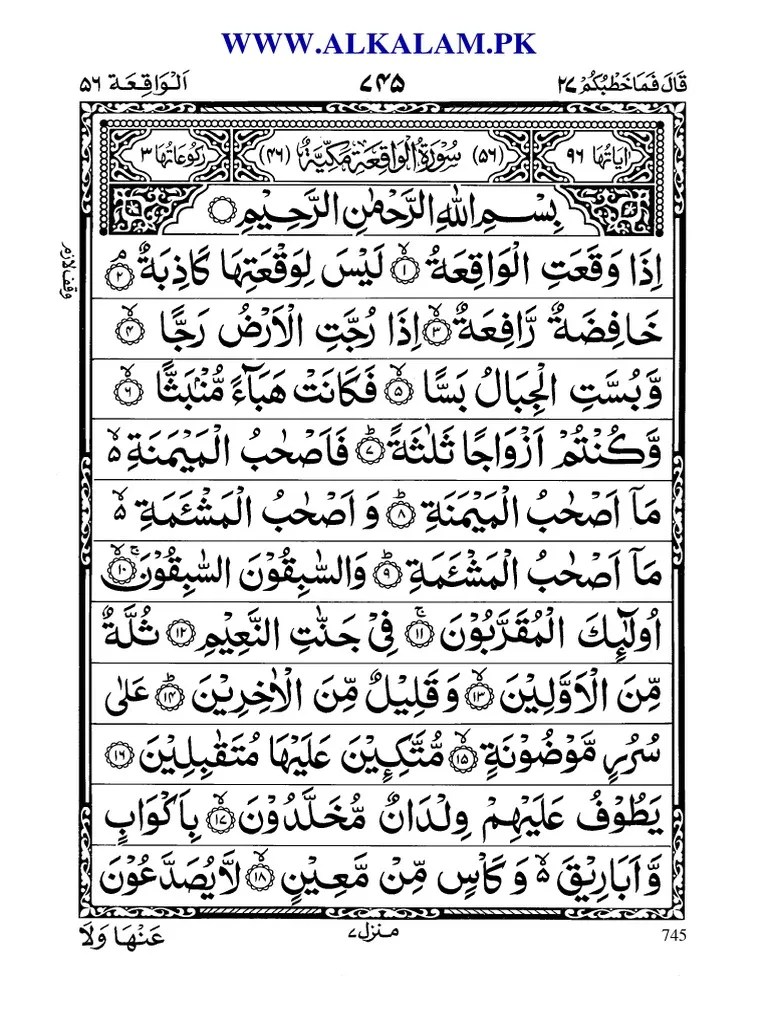 WWW.ALKALAM.PK
قَالَ فَمَا خَطْبُكُمْ ۲۷ ۷۴۵ اَلْوَاقِعَة ۵۶
اٰیَاتُهَا ۹۶ (۵۶) سُوْرَةُ الْوَاقِعَةِ مَكِّیَّةٌ (۴۶) رُكُوْعَاتُهَا ۳
بِسْمِ اللّٰهِ الرَّحْمٰنِ الرَّحِیْمِ ۝
اِذَا وَقَعَتِ الْوَاقِعَةُ ۙ﴿۱﴾ لَیْسَ لِوَقْعَتِهَا كَاذِبَةٌ ۘ﴿۲﴾
وقف لازم
خَافِضَةٌ رَّافِعَةٌ ۙ﴿۳﴾ اِذَا رُجَّتِ الْاَرْضُ رَجًّا ۙ﴿۴﴾
وَّبُسَّتِ الْجِبَالُ بَسًّا ۙ﴿۵﴾ فَكَانَتْ هَبَآءً مُّنْۢبَثًّا ۙ﴿۶﴾
وَّكُنْتُمْ اَزْوَاجًا ثَلٰثَةً ؕ﴿۷﴾ فَاَصْحٰبُ الْمَیْمَنَةِ ۙ۬
مَاۤ اَصْحٰبُ الْمَیْمَنَةِ ؕ﴿۸﴾ وَ اَصْحٰبُ الْمَشْـَٔمَةِ ۙ۬
مَاۤ اَصْحٰبُ الْمَشْـَٔمَةِ ؕ﴿۹﴾ وَالسّٰبِقُوْنَ السّٰبِقُوْنَ ۚۙ﴿۱۰﴾
اُولٰٓئِكَ الْمُقَرَّبُوْنَ ۚ﴿۱۱﴾ فِیْ جَنّٰتِ النَّعِیْمِ ﴿۱۲﴾ ثُلَّةٌ
مِّنَ الْاَوَّلِیْنَ ۙ﴿۱۳﴾ وَ قَلِیْلٌ مِّنَ الْاٰخِرِیْنَ ؕ﴿۱۴﴾ عَلٰی
سُرُرٍ مَّوْضُوْنَةٍ ۙ﴿۱۵﴾ مُّتَّكِـِٕیْنَ عَلَیْهَا مُتَقٰبِلِیْنَ ﴿۱۶﴾
یَطُوْفُ عَلَیْهِمْ وِلْدَانٌ مُّخَلَّدُوْنَ ۙ﴿۱۷﴾ بِاَكْوَابٍ
وَّ اَبَارِیْقَ ۙ۬ وَ كَاْسٍ مِّنْ مَّعِیْنٍ ۙ﴿۱۸﴾ لَّا یُصَدَّعُوْنَ
745 منزل ۷ عَنْهَا وَلَا